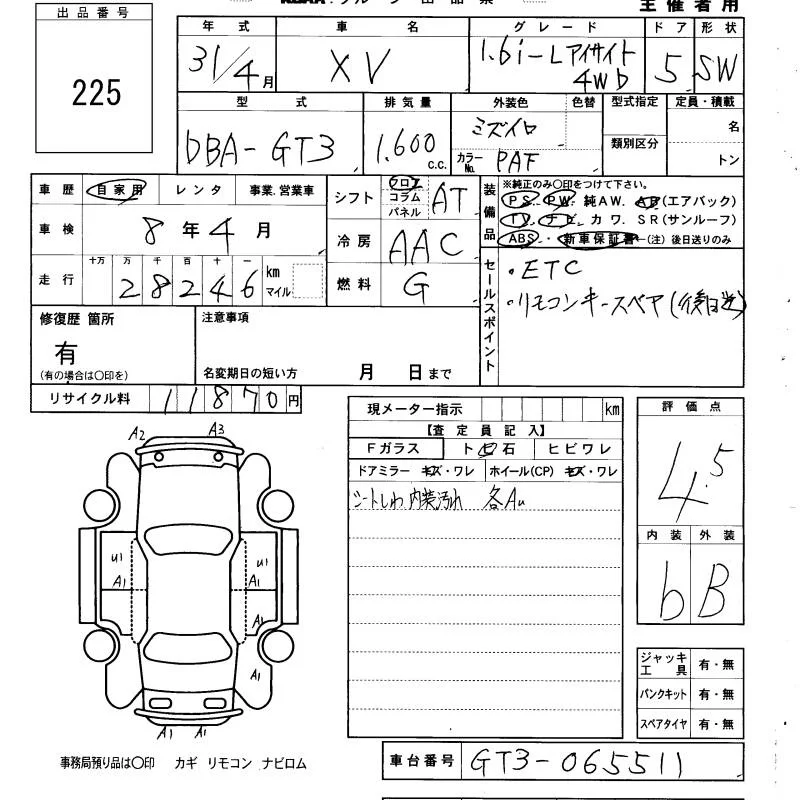 出品番号
225
主催者用
年式 車名 グレード ドア 形状
31/4月 XV 1.6i-Lアイサイト 4WD 5 SW
型式 排気量 外装色 色替 型式指定 定員・積載
DBA-GT3 1.600 c.c. ミズイロ 名
カラーNo. PAF 類別区分 トン
車歴 自家用 レンタ 事業.営業車
シフト フロア コラム パネル AT
装備品 ※純正のみ○印をつけて下さい。
PS PW. 純AW. AB(エアバック)
TV ナビ カワ. SR(サンルーフ)
ABS. 新車保証書←(注)後日送りのみ
車検 8年4月
冷房 AAC
走行 十万 万 千 百 十 一
28246 km マイル
燃料 G
セールスポイント
・ETC
・リモコンキースペア(後日送)
修復歴 箇所 注意事項
有
(有の場合は○印を) 名変期日の短い方 月 日まで
リサイクル料 11870円
現メーター指示 km
【査定員記入】
Fガラス ト ビ 石 ヒビワレ
ドアミラー キズ・ワレ ホイール(CP) キズ・ワレ
シートしわ 内装汚れ 各Au
評価点
4.5
内装 外装
b B
A2 A3
U1 U1
A1 A1
A1
A1 A1
ジャッキ工具 有・無
パンクキット 有・無
スペアタイヤ 有・無
事務局預り品は○印 カギ リモコン ナビロム
車台番号 GT3-065511